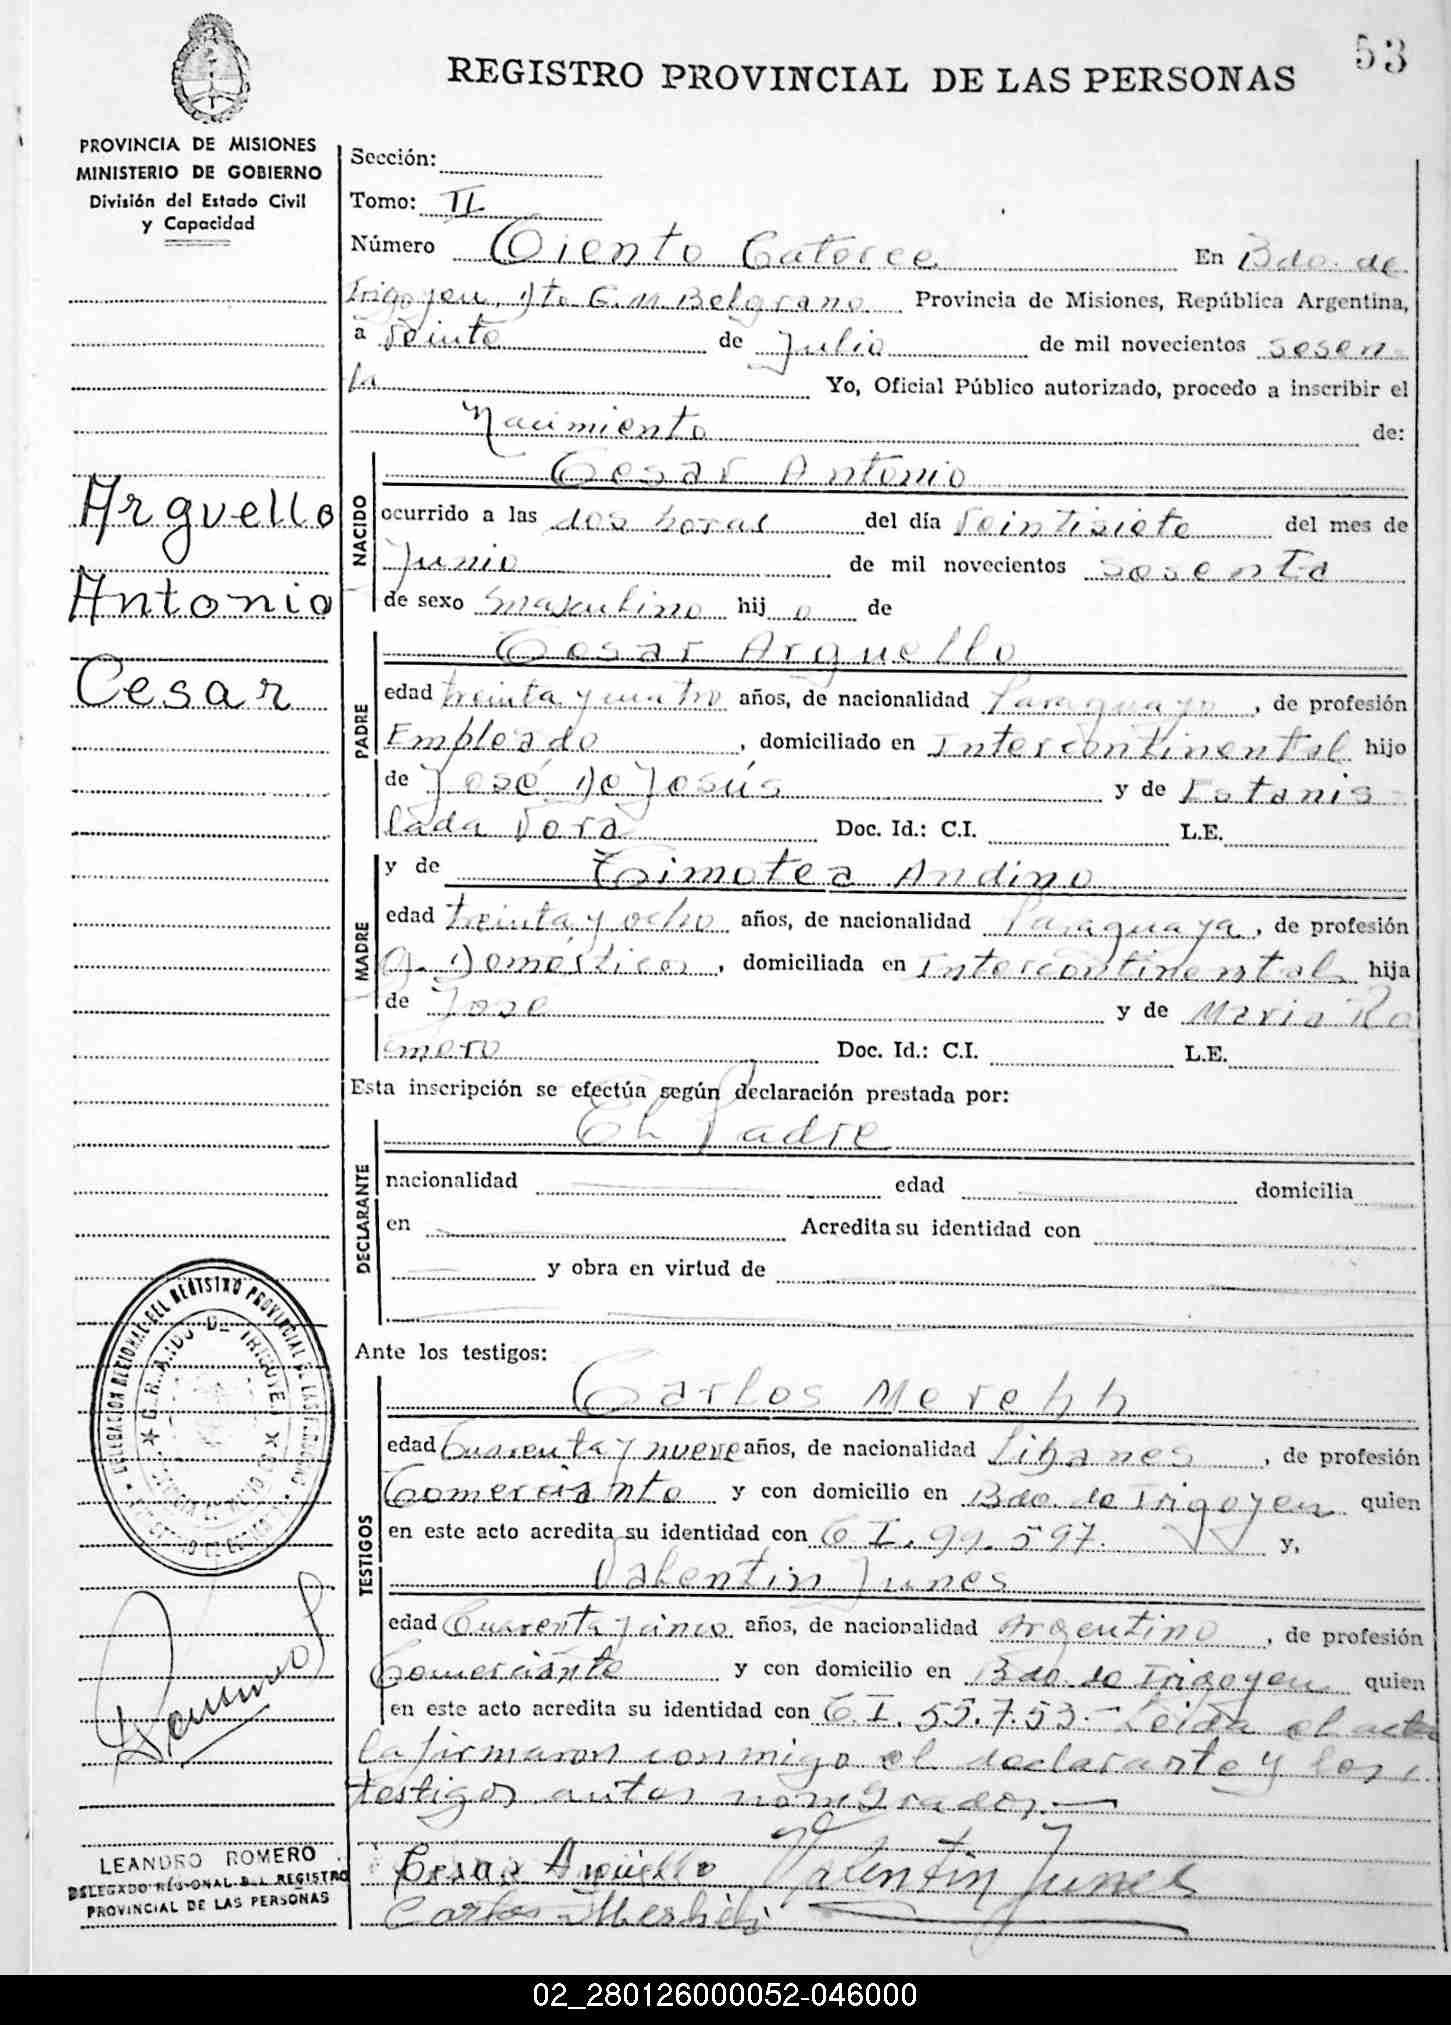 53
REGISTRO PROVINCIAL DE LAS PERSONAS
PROVINCIA DE MISIONES
MINISTERIO DE GOBIERNO
División del Estado Civil
y Capacidad
Arguello
Antonio
Cesar
Sección:
Tomo: II
Número Ciento Catorce En Bdo. de
Irigoyen, Dto G. M Belgrano Provincia de Misiones, República Argentina,
a Veinte de Julio de mil novecientos sesen-
ta Yo, Oficial Público autorizado, procedo a inscribir el
Nacimiento de:
NACIDO
Cesar Antonio
ocurrido a las dos horas del día Veintisiete del mes de
Junio de mil novecientos sesenta
de sexo masculino hijo de
PADRE
Cesar Arguello
edad treinta y cuatro años, de nacionalidad Paraguayo, de profesión
Empleado, domiciliado en Intercontinental hijo
de José De Jesús y de Estanis-
lada Vera Doc. Id.: C.I. L.E.
MADRE
y de Timotea Andino
edad treinta y ocho años, de nacionalidad Paraguaya, de profesión
Q. Domésticos, domiciliada en Intercontinental hija
de Jose y de Maria Ro
mero Doc. Id.: C.I. L.E.
Esta inscripción se efectúa según declaración prestada por:
DECLARANTE
El Padre
nacionalidad edad domicilia
en Acredita su identidad con
y obra en virtud de
Ante los testigos:
TESTIGOS
Carlos Merehh
edad Cuarenta y nueve años, de nacionalidad Libanes, de profesión
Comerciante y con domicilio en Bdo. de Irigoyen quien
en este acto acredita su identidad con C I. 99.597. y,
Valentin Junes
edad Cuarenta y cinco años, de nacionalidad Argentino, de profesión
Comerciante y con domicilio en Bdo. de Irigoyen quien
en este acto acredita su identidad con C. I. 55.7.53.- Leida el acta
la firmaron conmigo el declarante y los
testigos antes nombrados.—
Cesar Arguello Valentin Junes
Carlos
LEANDRO ROMERO
DELEGADO REGIONAL DEL REGISTRO
PROVINCIAL DE LAS PERSONAS
02_280126000052-046000